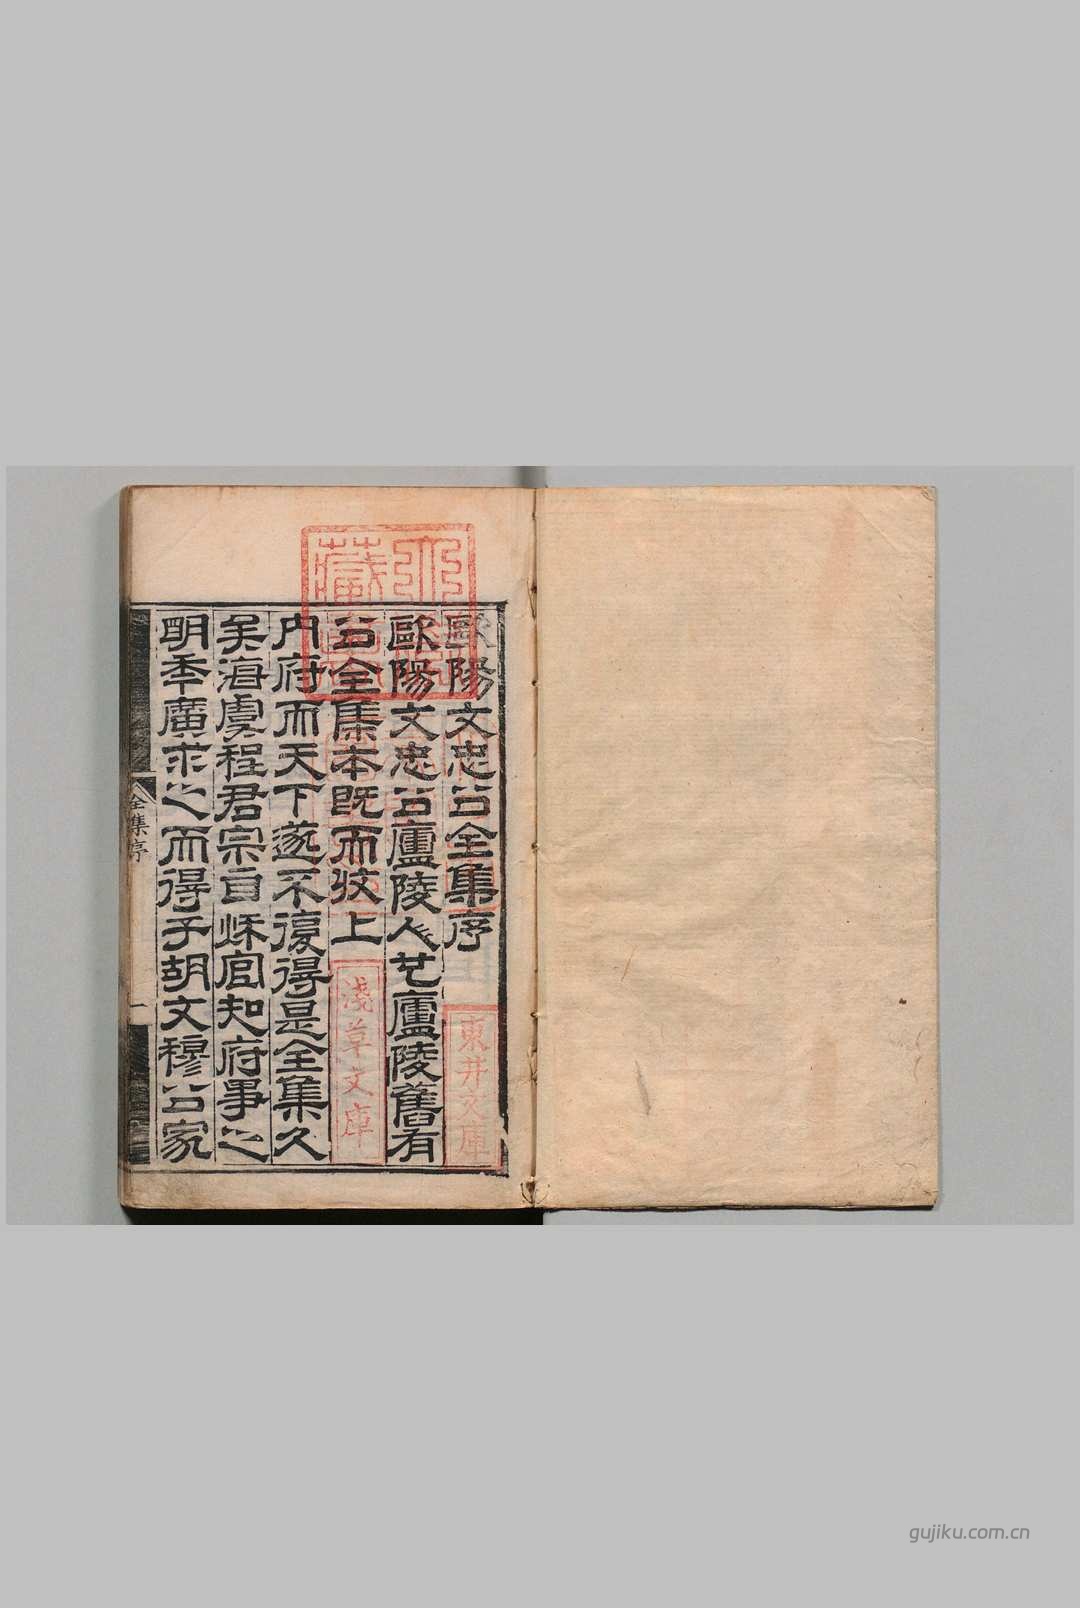 歐陽文忠公全集序
歐陽文忠公廬陵人也廬陵舊有
公全集本既而收上
內府而天下遂不復得是全集久
矣海虞程君宗自秋官知府事之
明年廣求之而得于胡文穆公家
全集序
一
淺草文庫
東井文庫
gujiku.com.cn